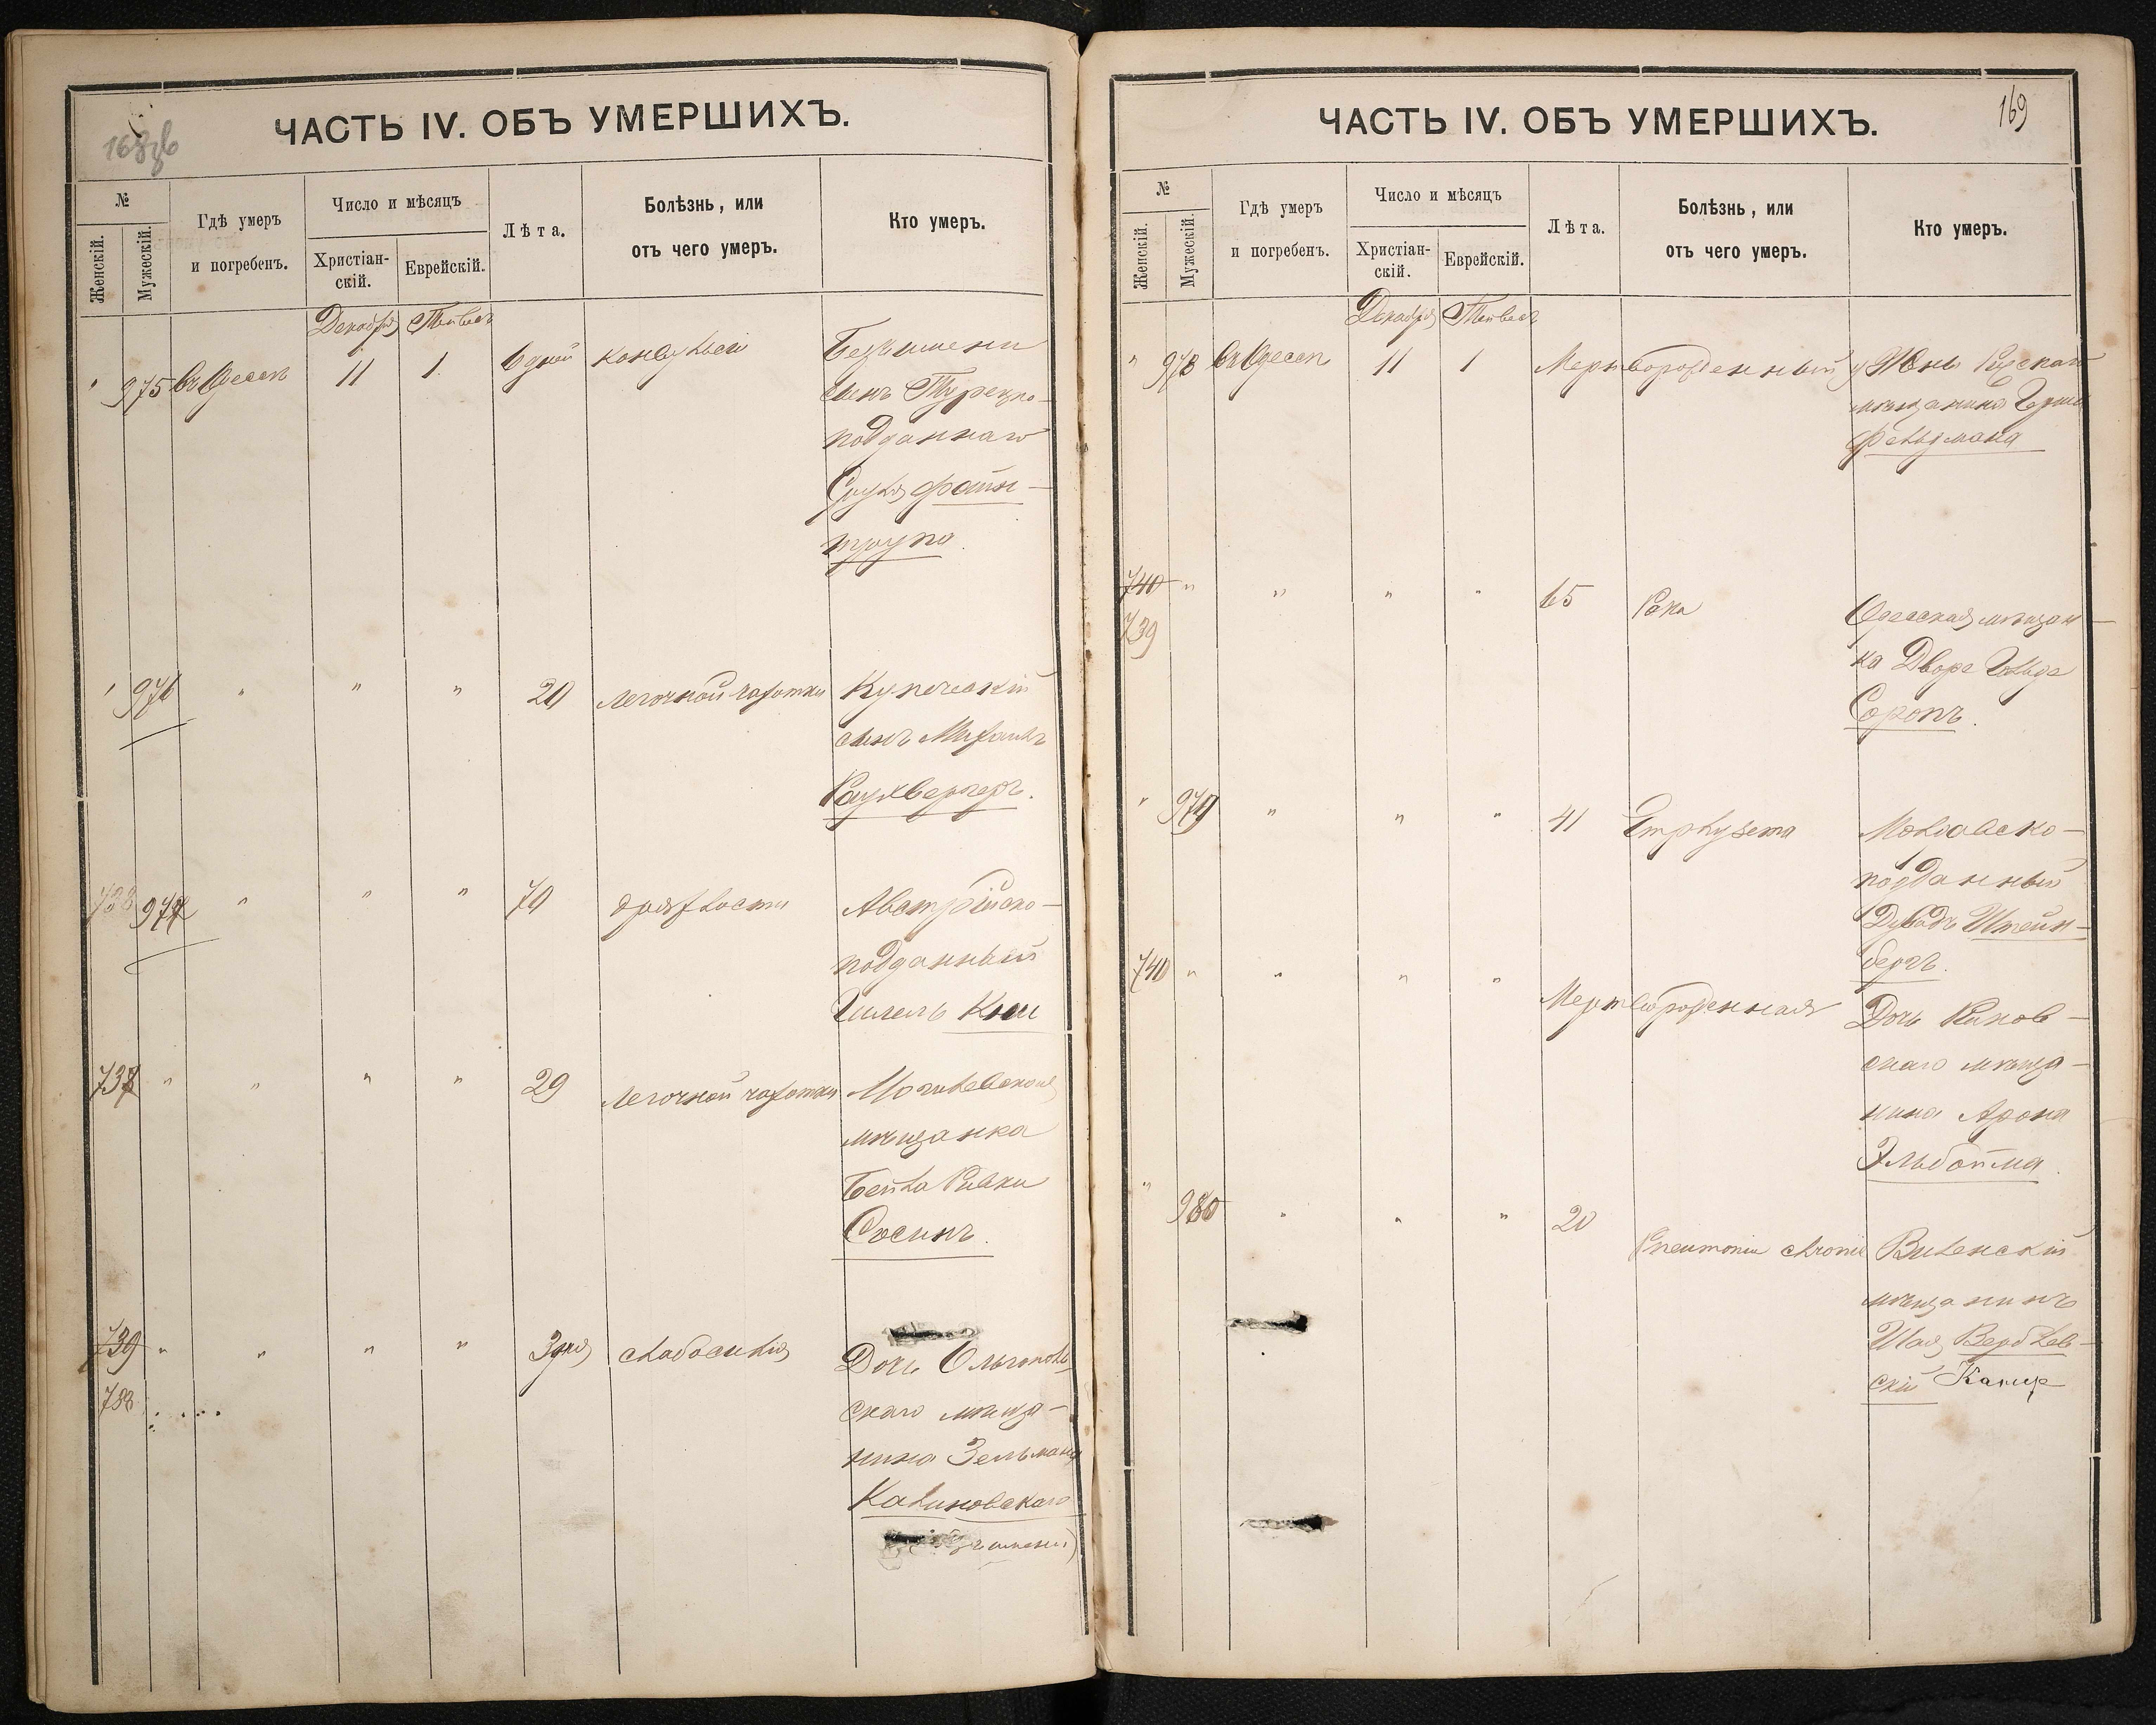 ЧАСТЬ IV. ОБЪ УМЕРШИХЪ.
№
Женскій.
Мужескій.
Гдѣ умеръ
и погребенъ.
Число и мѣсяцъ
Христіан-
скій.
Еврейскій.
Лѣта.
Болѣзнь, или
отъ чего умеръ.
Кто умеръ.
Декабрь Тейвесъ
" 975 въ Одессѣ 11 1 6 дней конвульсій Безъимени
сынъ Турецко-
подданнаго
" 976 " " " 20 легочной чахотки Купеческій
сынъ Михаилъ
738 977 " " " 70 дряхлости Австрійско-
подданный
737 " " " " 29 легочной чахотки Могилевская
мѣщанка
Бейла Ривка
Сосинъ.
739 " " " " 3 дня слабосилія Дочь Ольгополь-
738
скаго мѣща-
нина Зельмана
Калиновскаго
ЧАСТЬ IV. ОБЪ УМЕРШИХЪ.
169
№
Женскій.
Мужескій.
Гдѣ умеръ
и погребенъ.
Число и мѣсяцъ
Христіан-
скій.
Еврейскій.
Лѣта.
Болѣзнь, или
отъ чего умеръ.
Кто умеръ.
Декабрь Тейвесъ
" 978 въ Одессѣ 11 1 Мертворожденный у Жены
мѣщанина Герша
Фельдмана
740 " " " " 65 Рака Одесская мѣщан-
739
ка Двора Гольда
Сорокъ.
" 979 " " " 41 Emphysema Молдавско-
подданный
Дувидъ Штейн-
бергъ.
740 " " " " Мертворожденная Дочь
скаго мѣща-
нина Арона
Эльбойма.
" 980 " " " 20 Pneumonia chronic Виленскій
мѣщанинъ
Шая Верблев-
скій Капце